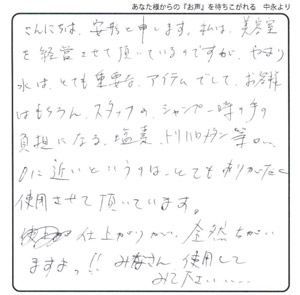 あなた様からの『お声』を待ちこがれる 中永より
こんにちは。安形と申します。私は、美容室
を経営させて頂いているのですが、やはり
水は、とても重要な、アイテムでして、お客様
はもちろん、スタッフの、シャンプー時の手の
負担になる、塩素、トリハロメタン等が、
0に近いというのは、とてもありがたく
使用させて頂いています。
仕上がりが、全然ちがい
ますよっ!! みなさん使用して
みて下さい、、、、